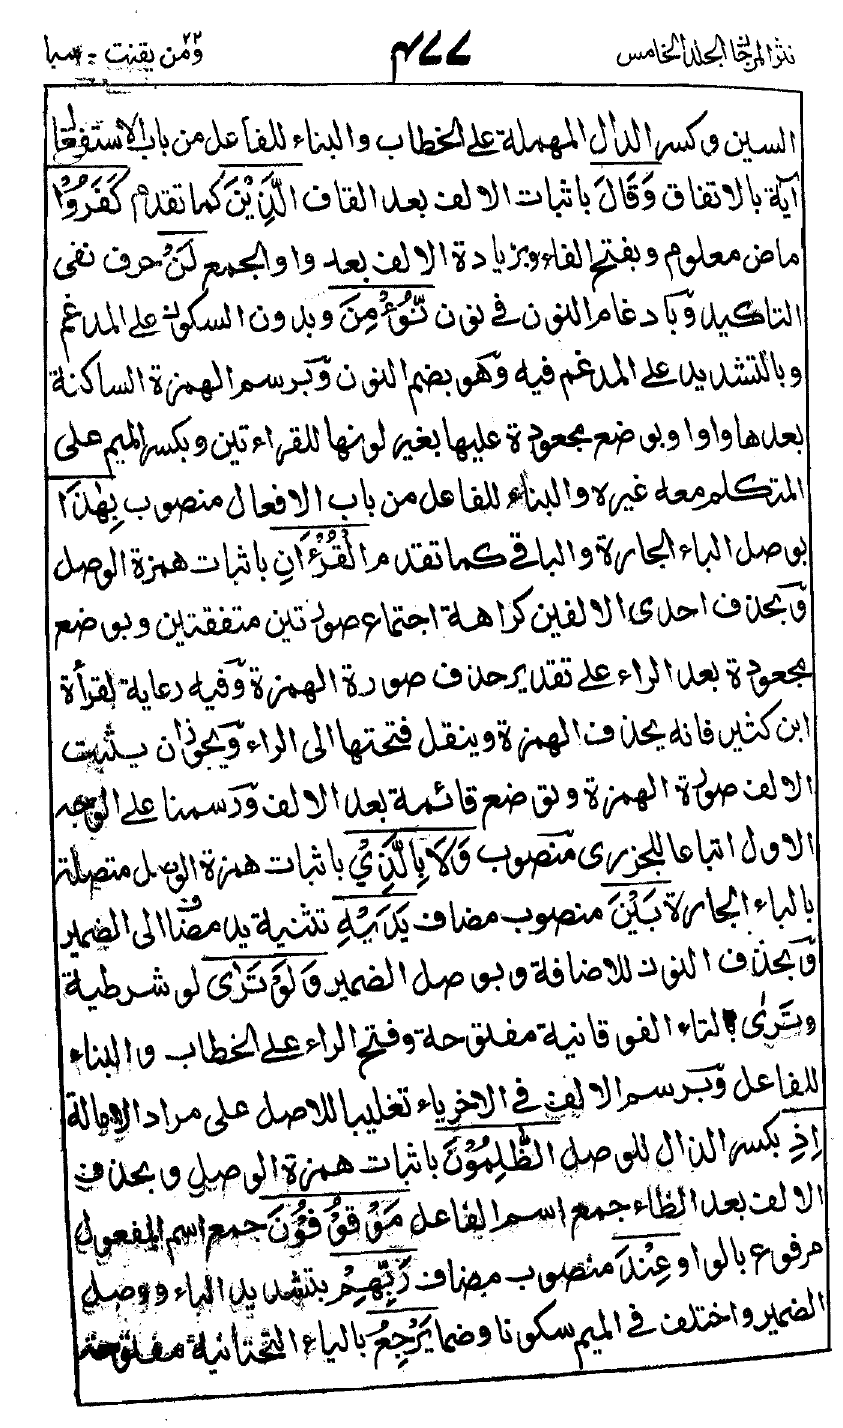 نثر المرجان الجلد الخامس ٤٧٧ ومن يقنت ٢٢ - سبا
السين وكسر الدال المهملة على الخطاب والبناء للفاعل من باب الاستفعال
آية بالاتفاق وَقَالَ باثبات الالف بعد القاف الَّذِيْنَ كما تقدم كَفَرُوْا
ماض معلوم وبفتح الفاء وبزيادة الالف بعد واو الجمع لَنْ حرف نفى
التاكيد وبادغام النون في نون نُّؤْمِنَ وبدون السكون على المدغم
وبالتشديد على المدغم فيه وهو بضم النون وبرسم الهمزة الساكنة
بعدها واوا وبوضع مجعودة عليها بغير لونها للقراءتين وبكسر الميم على
المتكلم معه غيره والبناء للفاعل من باب الافعال منصوب بِهٰذَا
بوصل الباء الجارة والباقي كما تقدم الْقُرْءَانِ باثبات همزة الوصل
وبحذف احدى الالفين كراهة اجتماع صورتين متفقتين وبوضع
مجعودة بعد الراء على تقدير حذف صورة الهمزة وفيه رعاية لقرأة
ابن كثير فانه يحذف الهمزة وينقل فتحتها الى الراء ويجوز ان يثبت
الالف صورة الهمزة وتوضع قائمة بعد الالف ورسمنا على الوجه
الاول اتباعا للجزرى منصوب وَلَا بِالَّذِيْ باثبات همزة الوصل متصلة
بالباء الجارة بَيْنَ منصوب مضاف يَدَيْهِ تثنية يد مضافا الى الضمير
وبحذف النون للاضافة وبوصل الضمير وَلَوْ تَرٰى لو شرطية
وتَرٰى بالتاء الفوقانية مفتوحة وفتح الراء على الخطاب والبناء
للفاعل وبرسم الالف في الاخر ياء تغليبا للاصل على مراد الامالة
اِذِ بكسر الذال للوصل الظّٰلِمُوْنَ باثبات همزة الوصل وبحذف
الالف بعد الظاء جمع اسم الفاعل مَوْقُوْفُوْنَ جمع اسم المفعول
مرفوع بالواو عِنْدَ منصوب مضاف رَبِّهِمْ بتشديد الباء ووصل
الضمير واختلف في الميم سكونا وضما يَرْجِعُ بالياء التحتانية مفتوحة